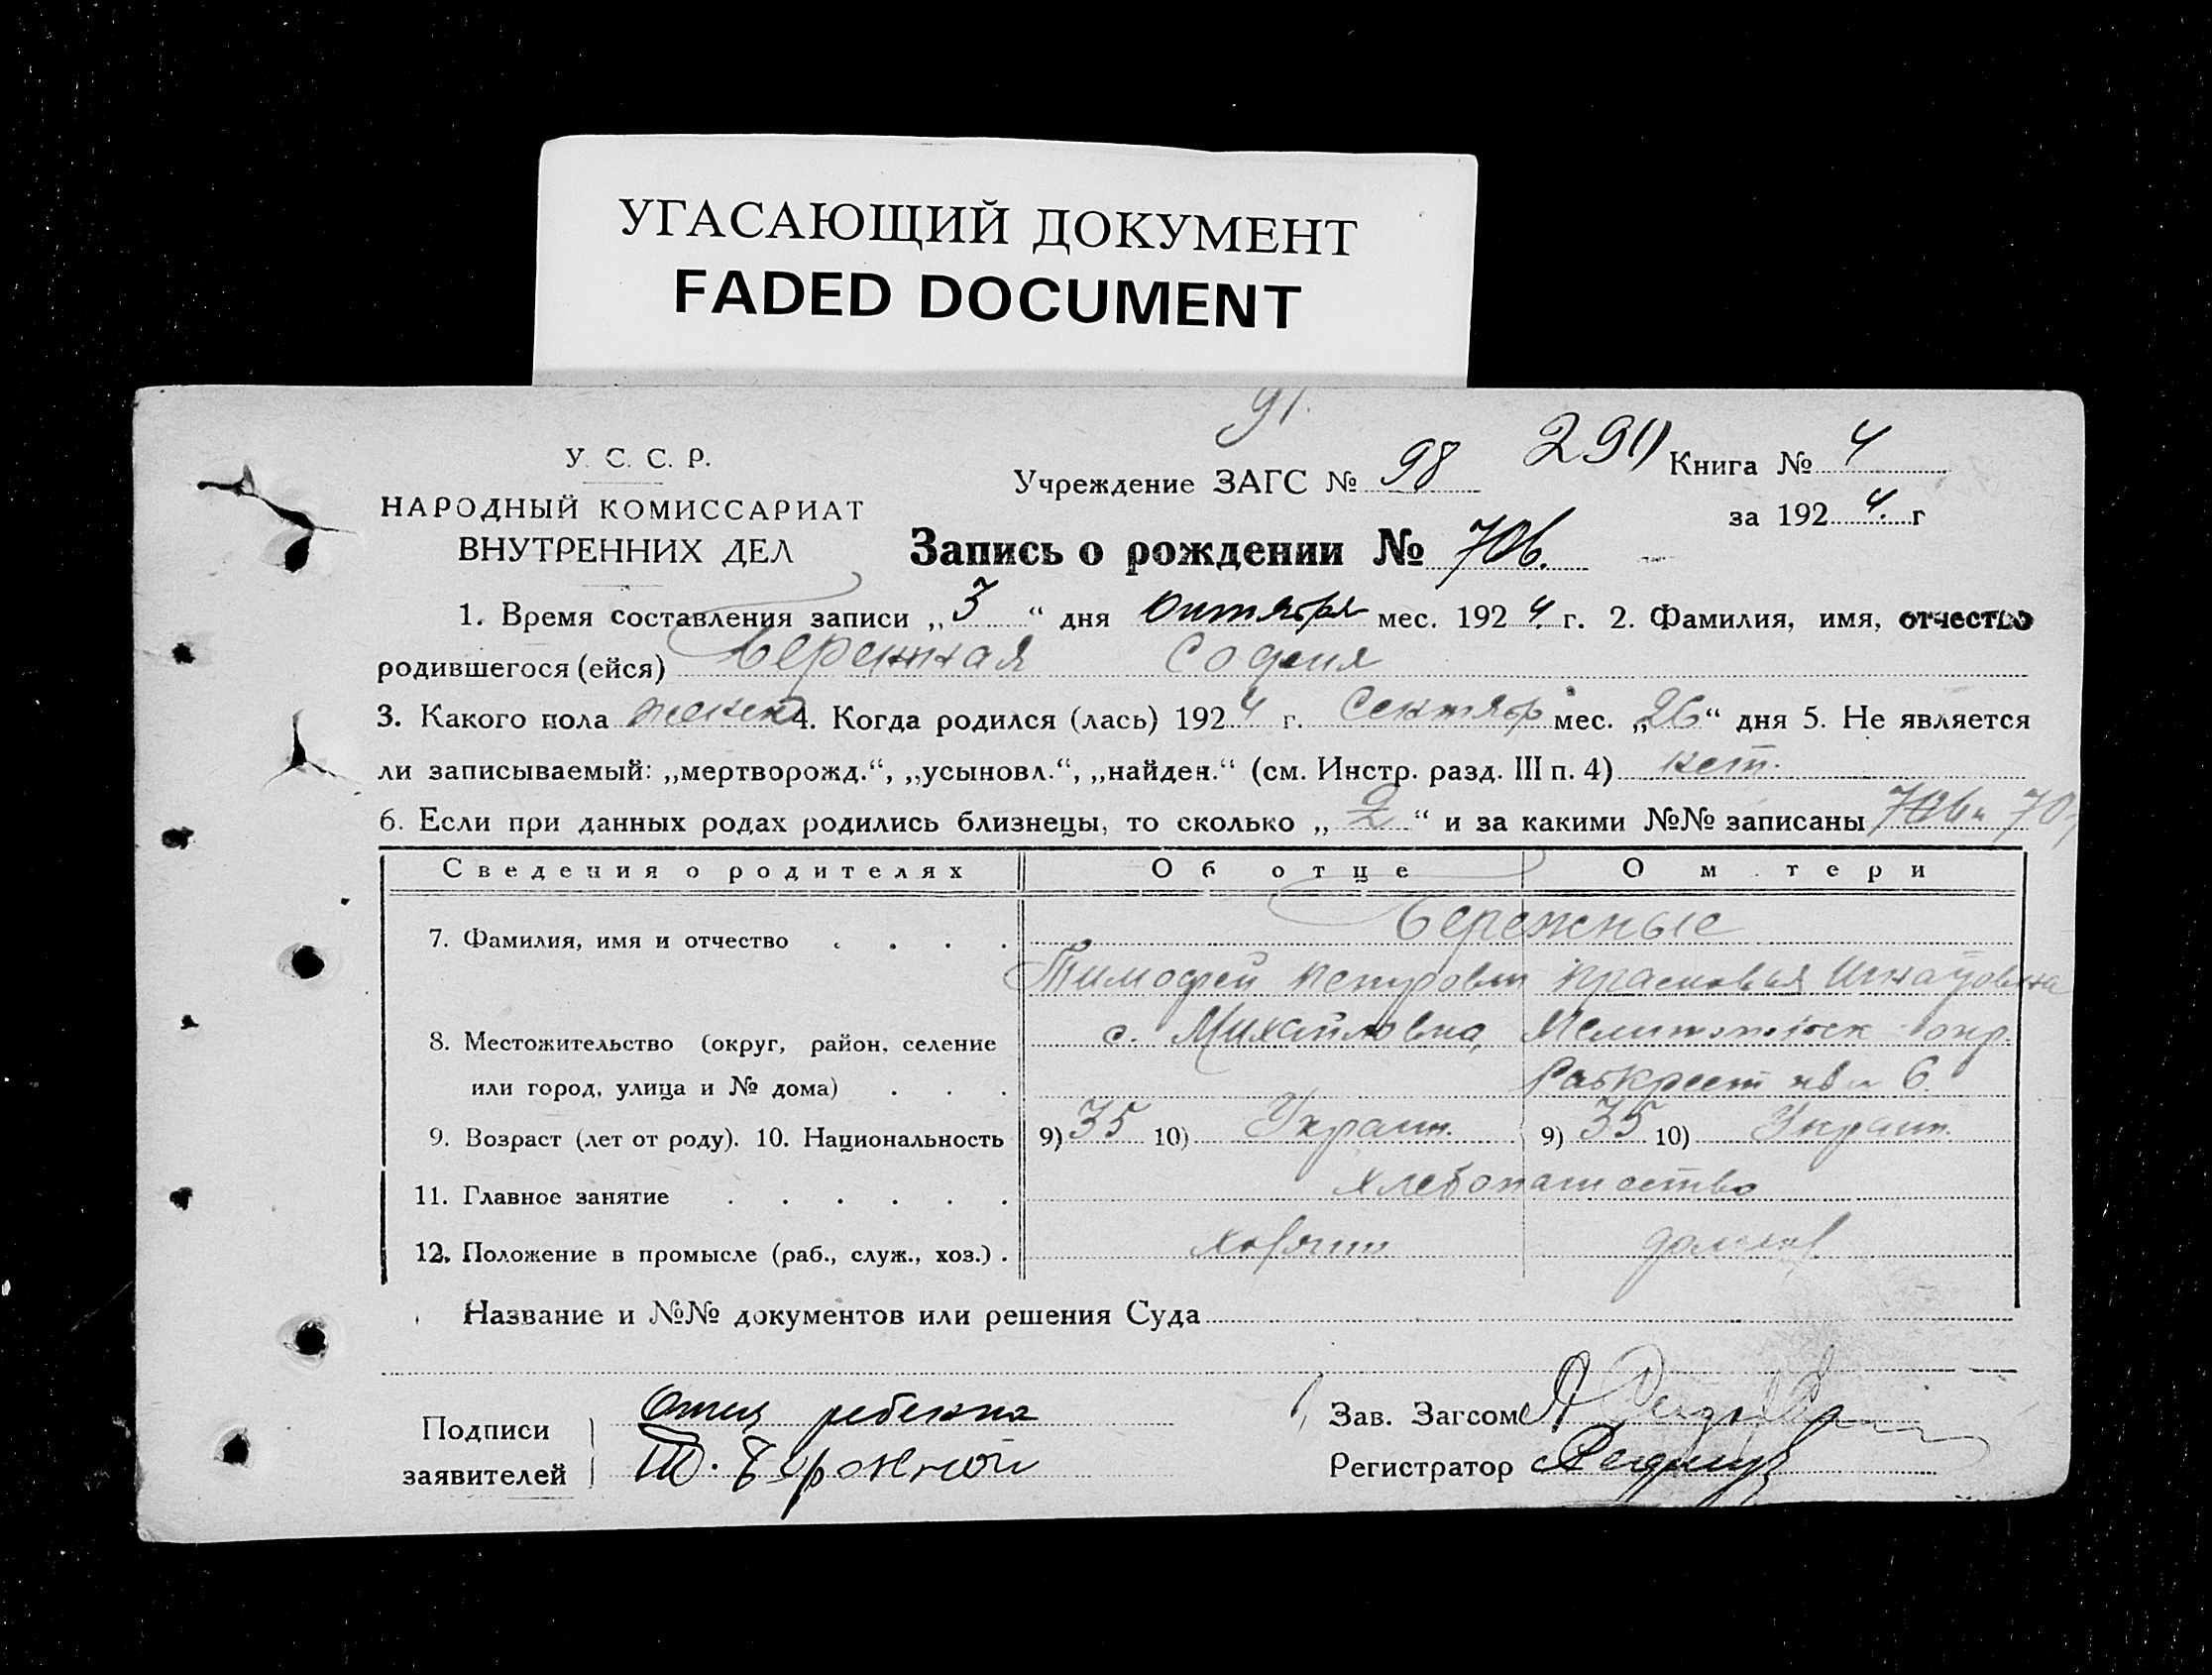 УГАСАЮЩИЙ ДОКУМЕНТ
FADED DOCUMENT
91.
У. С. С. Р.
НАРОДНЫЙ КОМИССАРИАТ
ВНУТРЕННИХ ДЕЛ
Учреждение ЗАГС № 98
290 Книга № 4
за 1924. г
Запись о рождении № 706.
1. Время составления записи „3“ дня октября мес. 1924. г. 2. Фамилия, имя, отчество
родившегося (ейся) Бережная София
3. Какого пола женск 4. Когда родился (лась) 1924 г. Сентябр мес. „26“ дня 5. Не является
ли записываемый: „мертворожд.“, „усыновл.“, „найден.“ (см. Инстр. разд. III п. 4) нет.
6. Если при данных родах родились близнецы, то сколько „2“ и за какими №№ записаны 706 и 707
Сведения о родителях Об отце О м тери
7. Фамилия, имя и отчество Бережные
Тимофей Петрович
8. Местожительство (округ, район, селение с. Михайловка, Мелитопольск окр.
или город, улица и № дома)
9. Возраст (лет от роду). 10. Национальность 9) 35 10) Украин. 9) 35 10) Украин.
11. Главное занятие хлебопашество
12. Положение в промысле (раб., служ., хоз.) хозяин домохоз
Название и №№ документов или решения Суда
Подписи
заявителей
Отец ребенка
Т. Бережной
Зав. Загсом
Регистратор